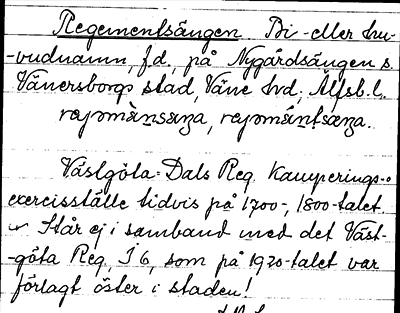 Regementsängen Bi- eller hu-
-vudnamn, f.d., på Nygårdsängen s.
Vänersborgs stad, Väne hd; Älfsb. l.
Västgöta-Dals Reg. kamperings- o
exercisställe tidvis på 1700-, 1800-talet.
Står ej i samband med det Väst-
-göta Reg, I 6, som på 1920-talet var
förlagt öster i staden!